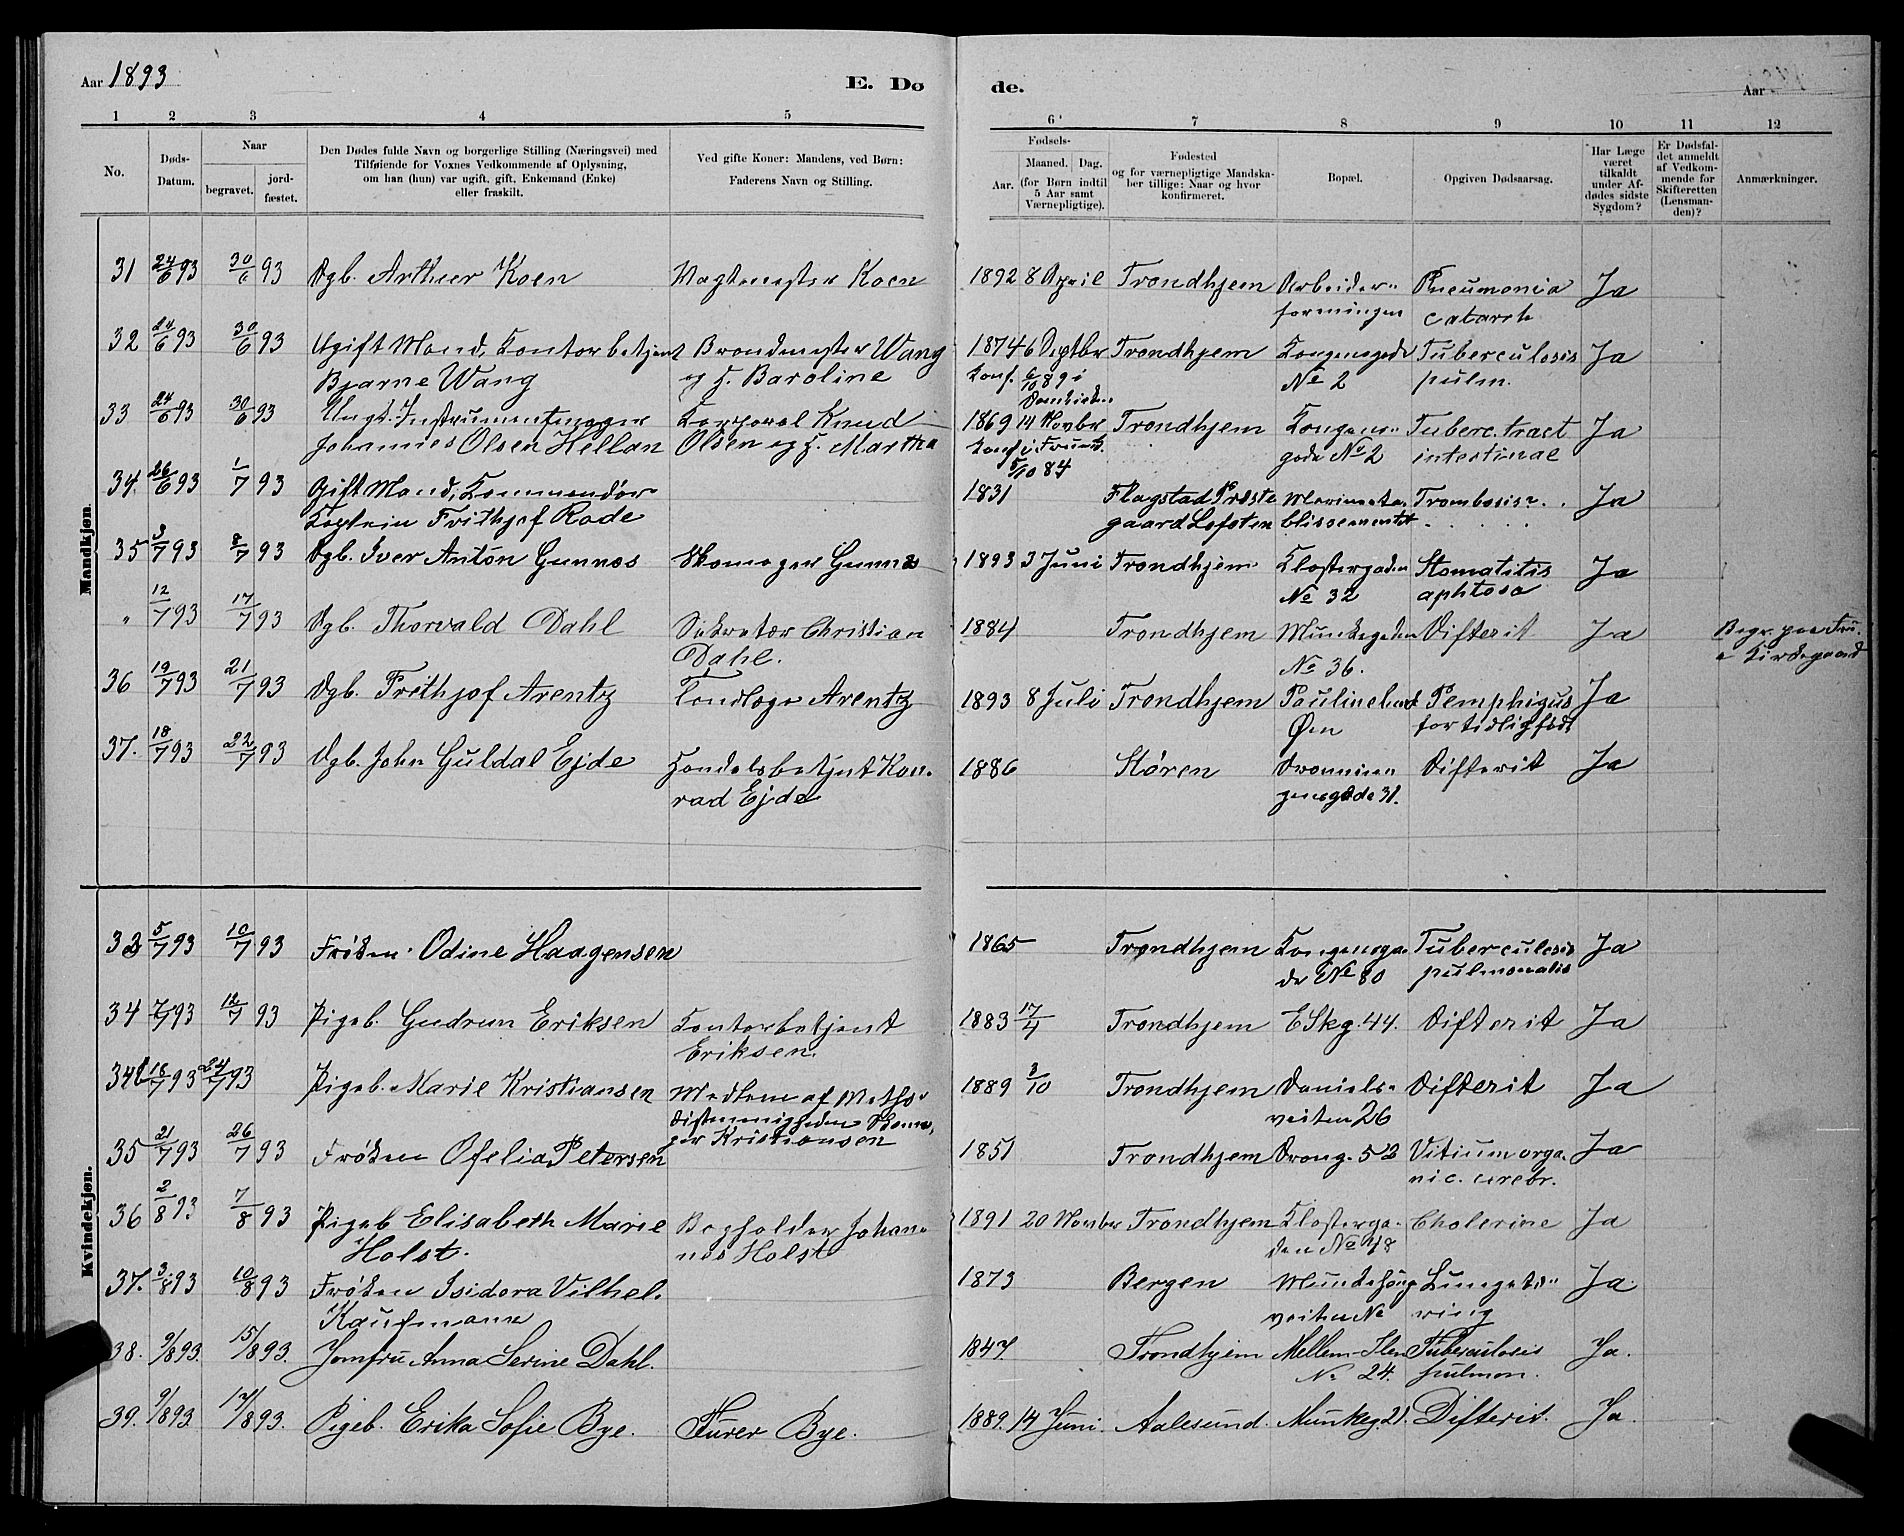 Aar 1893
E. Dø
de.
Aar
1 2 3 4 5 6 7 8 9 10 11 12
No.
Døds-
Datum.
Naar
begravet.
jord-
fæstet.
Den Dødes fulde Navn og borgerlige Stilling (Næringsvei) med
Tilføiende for Voxnes Vedkommende af Oplysning,
om han (hun) var ugift, gift, Enkemand (Enke)
eller fraskilt.
Ved gifte Koner: Mandens, ved Børn:
Faderens Navn og Stilling.
Fødsels-
Aar.
Maaned. Dag.
(for Børn indtil
5 Aar samt
Værnepligtige).
Fødested
og for værnepligtige Mandska-
ber tillige: Naar og hvor
konfirmeret.
Bopæl.
Opgiven Dødsaarsag.
Har Læge
været
tilkaldt
under Af-
dødes sidste
Sygdom?
Er Dødsfal-
det anmeldt
af Vedkom-
mende for
Skifteretten
(Lensman-
den)?
Anmærkninger.
Mandkjøn.
31 24/6 93 30/6 93 Dgb. Arthur Koen Vagtmester Koen 1892 8 April Trondhjem Arbeider- Pneumonia Ja
foreningen catarrh
32 24/6 93 30/6 93 Ugift Mand, Kontorbetjent Brandmester Wang 1874 6 Septbr Trondhjem Kongensgade Tuberculosis Ja
Bjarne Wang og H. Baroline Konf. 6/10 89 i No 2 pulm.
33 24/6 93 30/6 93 Ungk. Instrumentmager Korporal Knud 1869 14 Novbr Trondhjem Kongens- Tuberc. tract Ja
Johannes Olsen Hellan Olsen og H. Martha Konf. i gade No 2 intestinal
5/10 84
34. 26/6 93 1/7 93 Gift Mand, Kommandør- 1831 Flagstad Præste Marineeta- Trombosis Ja
Kaptein Frithjof Rode gaard Lofoten blissementet
35 3/7 93 8/7 93 Dgb. Iver Anton Gunnes Skomager Gunnes 1893 3 Juni Trondhjem Klostergaden Stomatitis Ja
No 32 aphtosa
" 12/7 93 17/7 93 Dgb. Thorvald Dahl Sekretær Christian 1884 Trondhjem Munkegaden Difterit Ja Begr. paa Fru-
Dahl. No 36. e Kirkegaard
36 19/7 93 21/7 93 Dgb. Frithjof Arentz Tandlæge Arentz 1893 8 Juli Trondhjem Paulinelund Pemphigus Ja
Øen for tidlig født
37. 18/7 93 22/7 93 Dgb. John Guldal Ejde Handelsbetjent Kon- 1886 Støren Dronnin- Difterit Ja
rad Ejde gensgade 31.
Kvindekjøn.
33 5/7 93 10/7 93 Frøken Odine Haagensen 1865 Trondhjem Kongensga- Tuberculosis Ja
de No 80 pulmonalis
34 7/7 93 12/7 93 Pigeb. Gudrun Eriksen Kontorbetjent 1883 17/4 Trondhjem E Skg. 44. Difterit Ja
Eriksen.
34b 18/7 93 24/7 93 Pigeb. Marie Kristiansen Medlem af Metho- 1889 3/10 Trondhjem Daniels- Difterit Ja
distmenigheden Skoma- veiten 26
ger Kristiansen
35 21/7 93 26/7 93 Frøken Ofelia Petersen 1851 Trondhjem Drong. 52 Vitium orga- Ja
nic. cerebr.
36 2/8 93 7/8 93 Pigeb Elisabeth Marie Bogholder Johan- 1891 20 Novber Trondhjem Klosterga- Cholerine Ja
Holst. nes Holst den No 48
37. 3/8 93 10/8 93 Frøken Isidora Vilhel. 1873 Bergen Munkehaug Lungetæ- Ja
Kaufmann veiten No ring
38. 9/8 93. 15/8 93. Jomfru Anna Serine Dahl. 1847. Trondhjem Mellem-Ilen Tuberculosis Ja.
No 24. pulmon.
39. 9/8 93. 17/8 93. Pigeb. Erika Sofie Bye. Furer Bye. 1889. 14 Juni. Aalesund. Munkeg. 21. Difterit. Ja.